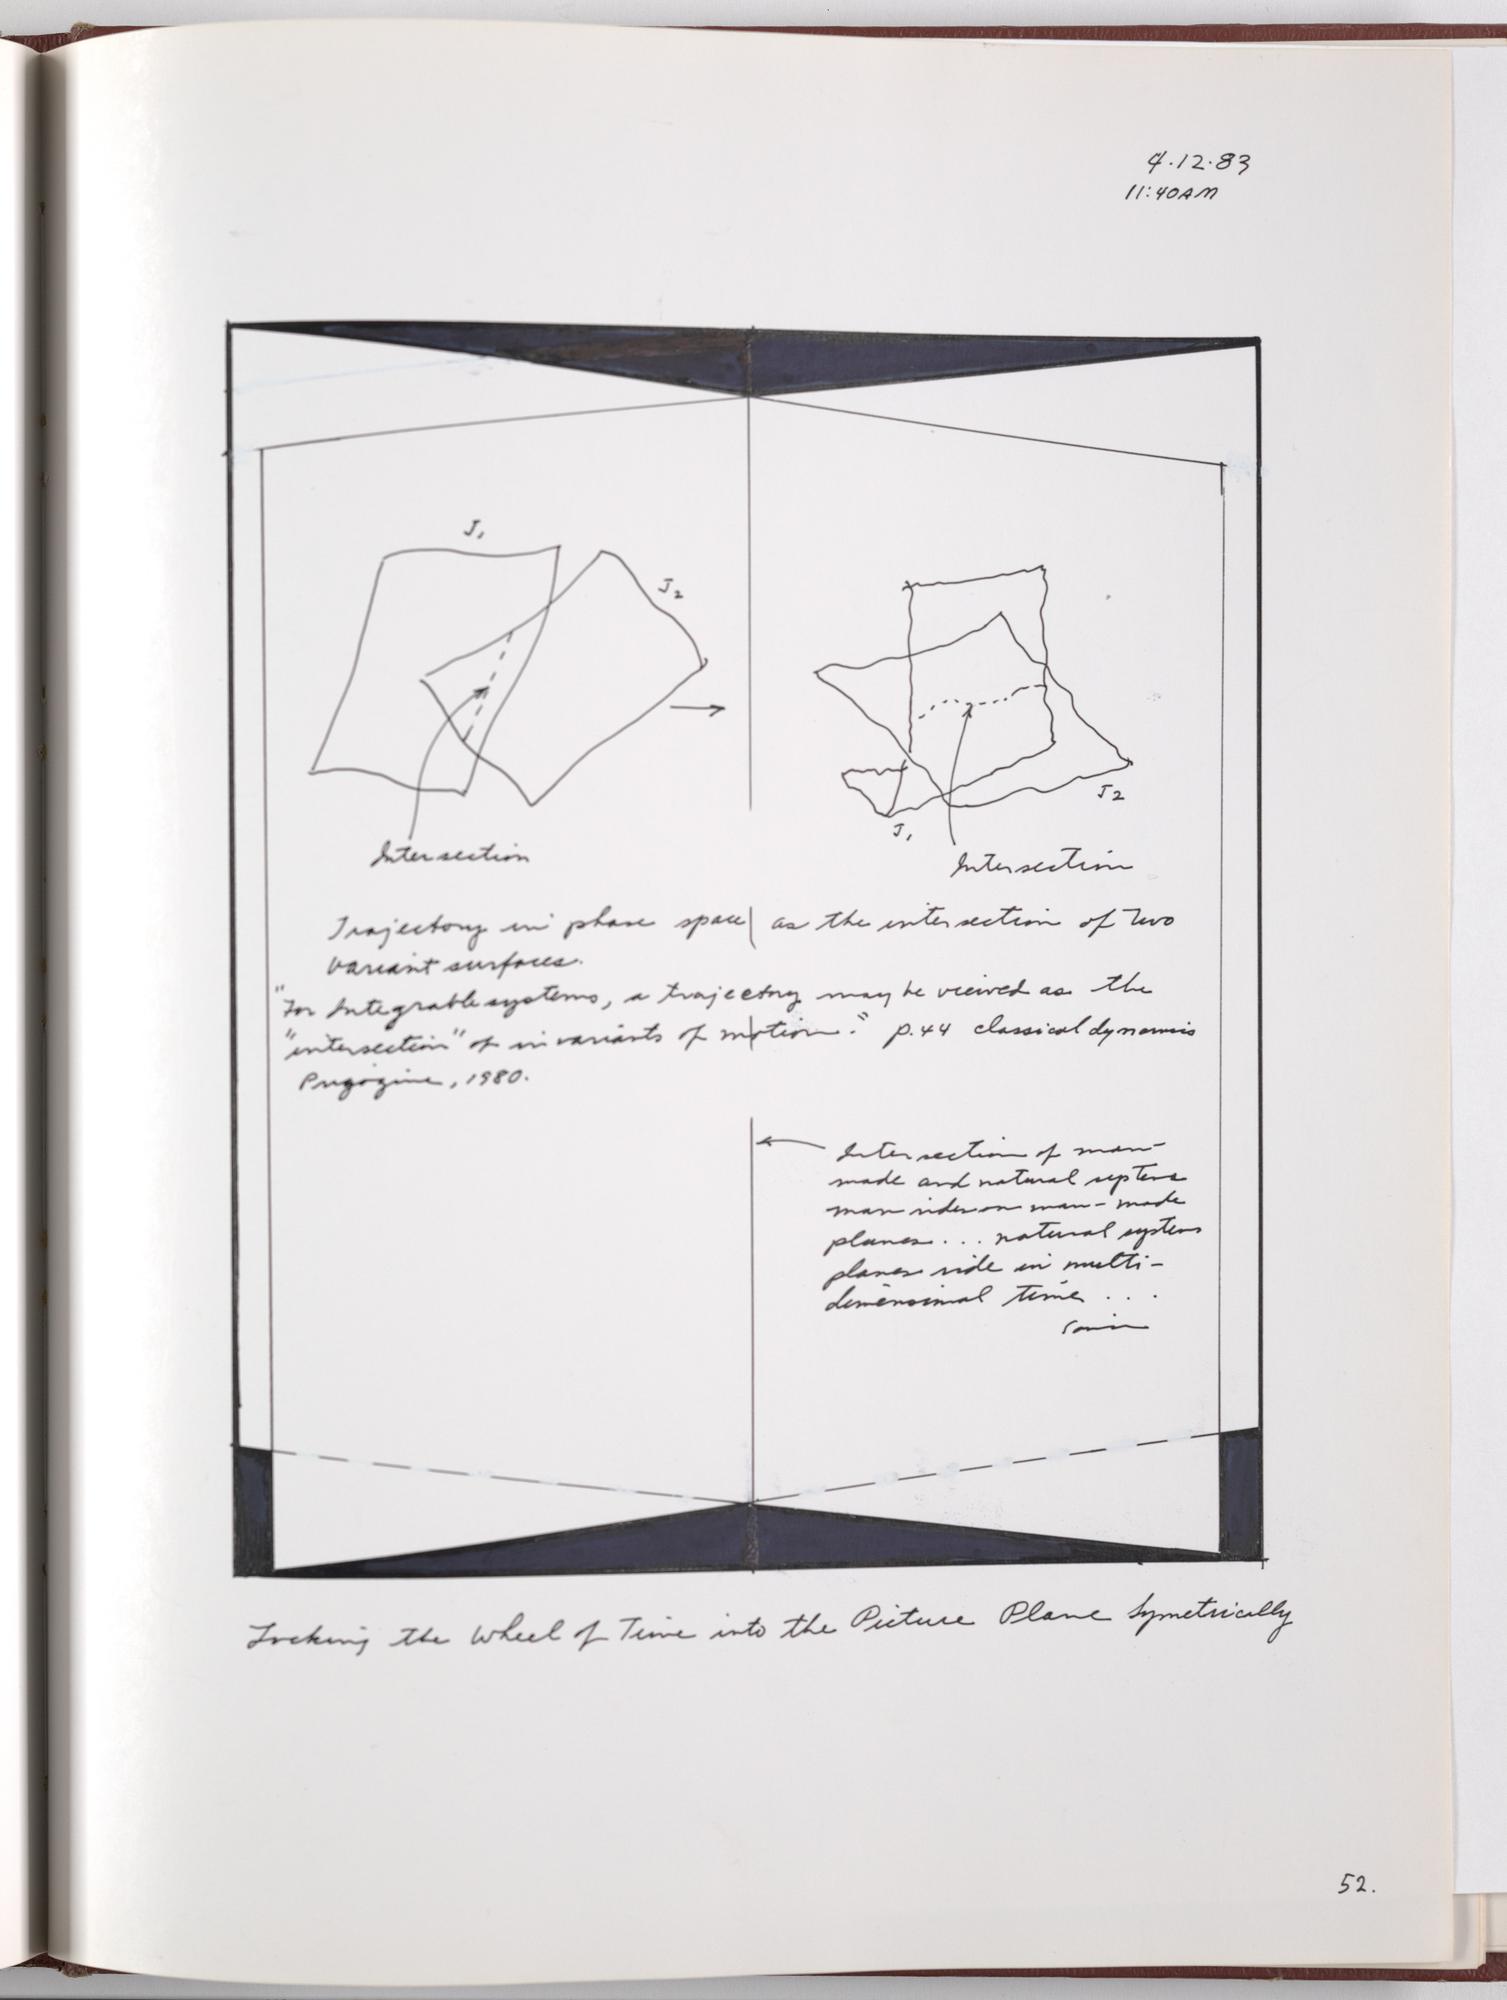 4.12.83
11:40AM
J1
J2
Intersection
J1
J2
Intersection
Trajectory in phase space as the intersection of Two
variant surfaces.
"For Integrable systems, a trajectory may be viewed as the
"intersection" of invariants of motion." p.44 classical dynamis
Prigogine, 1980.
Intersection of man-
made and natural systems
man rides on man-made
planes... natural systems
planes ride in multi-
dimensional time...
Locking the Wheel of Time into the Picture Plane Symetrically
52.